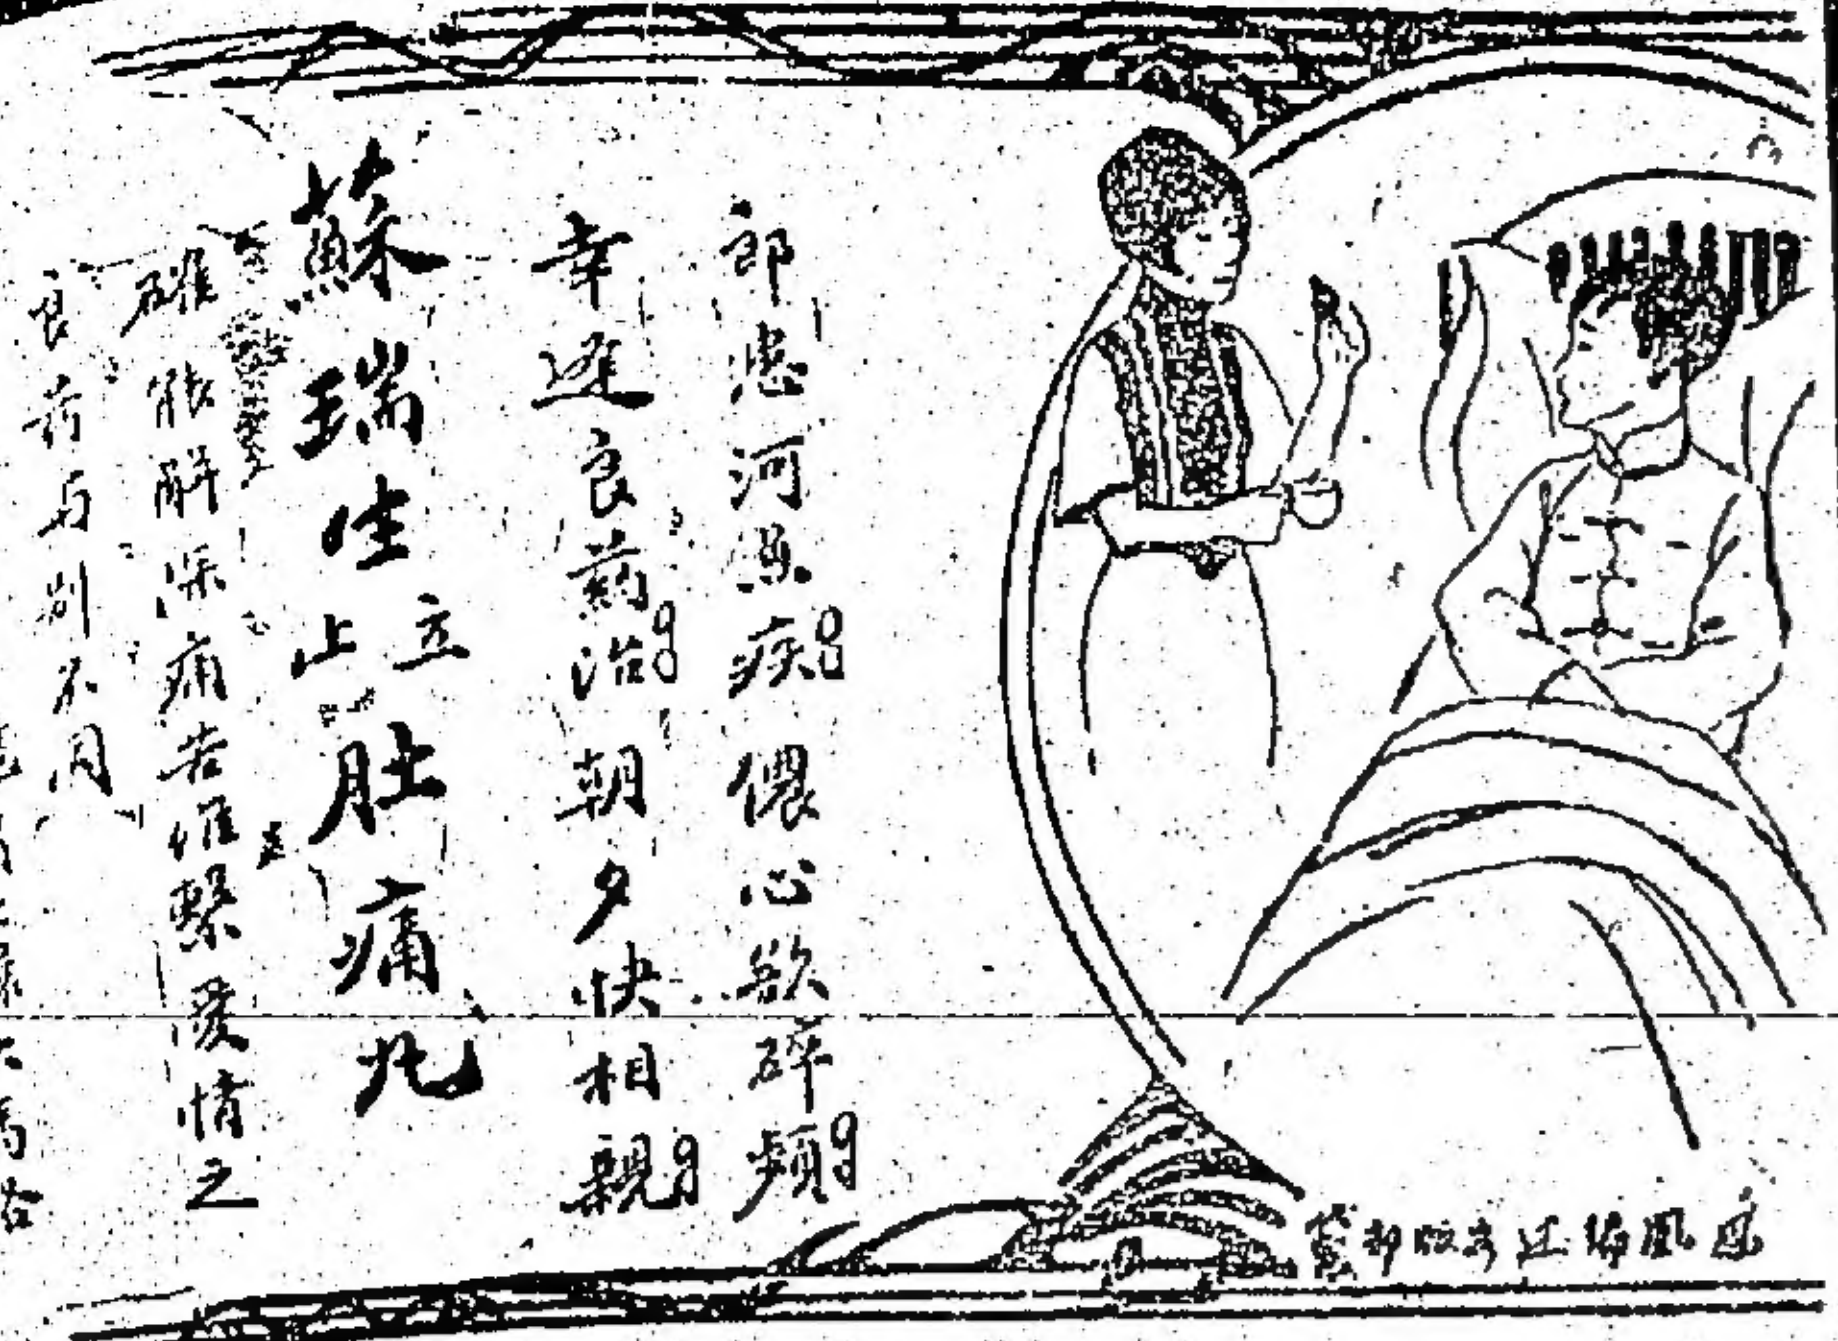 郎患河魚疾 偎心欲碎頻
幸逢良葯治 朝夕快相親
蘇瑞生立止肚痛丸
確能解除痛苦維繫愛情之
良葯与别不同